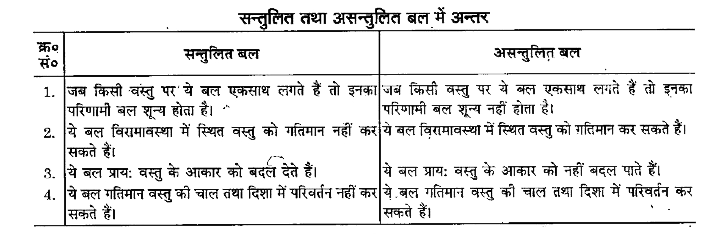 सन्तुलित तथा असन्तुलित बल में अन्तर
क्र०
सं०
सन्तुलित बल
असन्तुलित बल
1.
जब किसी वस्तु पर ये बल एकसाथ लगते हैं तो इनका
परिणामी बल शून्य होता है।
जब किसी वस्तु पर ये बल एकसाथ लगते हैं तो इनका
परिणामी बल शून्य नहीं होता है।
2.
ये बल विरामावस्था में स्थित वस्तु को गतिमान नहीं कर
सकते हैं।
ये बल विरामावस्था में स्थित वस्तु को गतिमान कर सकते हैं।
3.
ये बल प्राय: वस्तु के आकार को बदल देते हैं।
ये बल प्राय: वस्तु के आकार को नहीं बदल पाते हैं।
4.
ये बल गतिमान वस्तु की चाल तथा दिशा में परिवर्तन नहीं कर
सकते हैं।
ये बल गतिमान वस्तु की चाल तथा दिशा में परिवर्तन कर
सकते हैं।